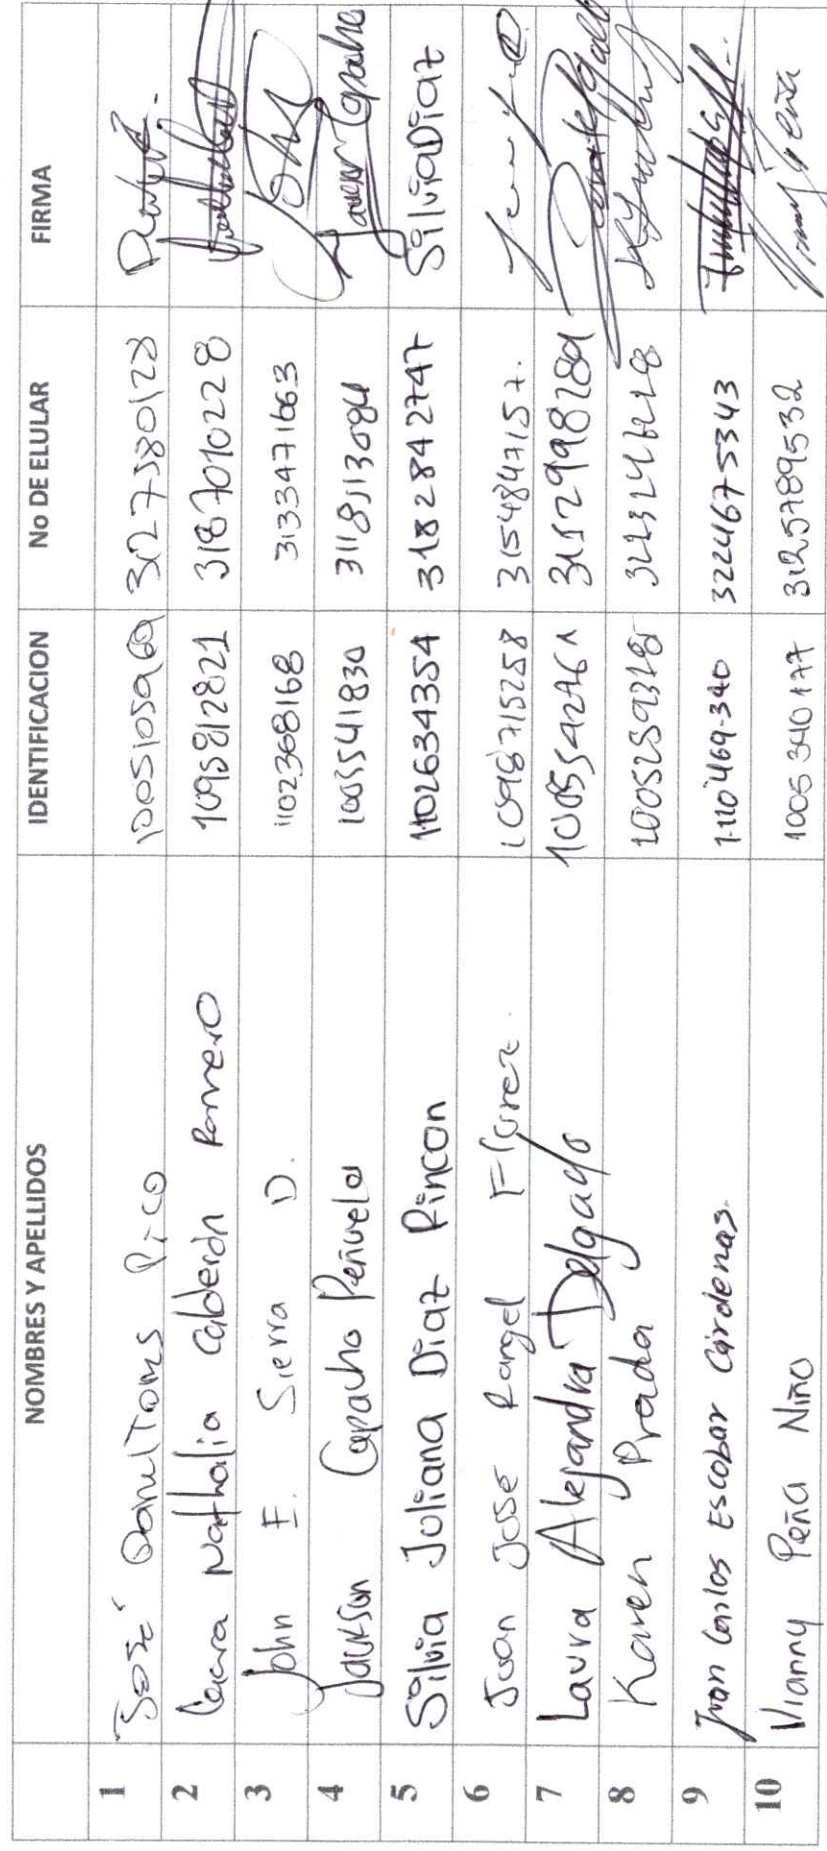 NOMBRES Y APELLIDOS IDENTIFICACION No DE ELULAR FIRMA
1 José Daniel Toms Pico 1005105969 3127580128
2 Laura Nathalia Calderón Romero 1095812821 3187010228
3 John E. Sierra D. 1102368168 3133471663
4 Jackson Capacho Peñuela 1005541830 3118113084 Jackson Capacho
5 Silvia Juliana Diaz Rincon 1102634354 3182842747 Silvia Diaz
6 Juan José Rangel Florez. 1098715258 3154847157.
7 Laura Alejandra Delgado 1005542761 3152998289
8 Karen Prada
9 Juan Carlos Escobar Cárdenas. 1.110'469.340 3224675343
10 Vianny Peña Niño 1005 340 177 3125789532 Vianny Peña